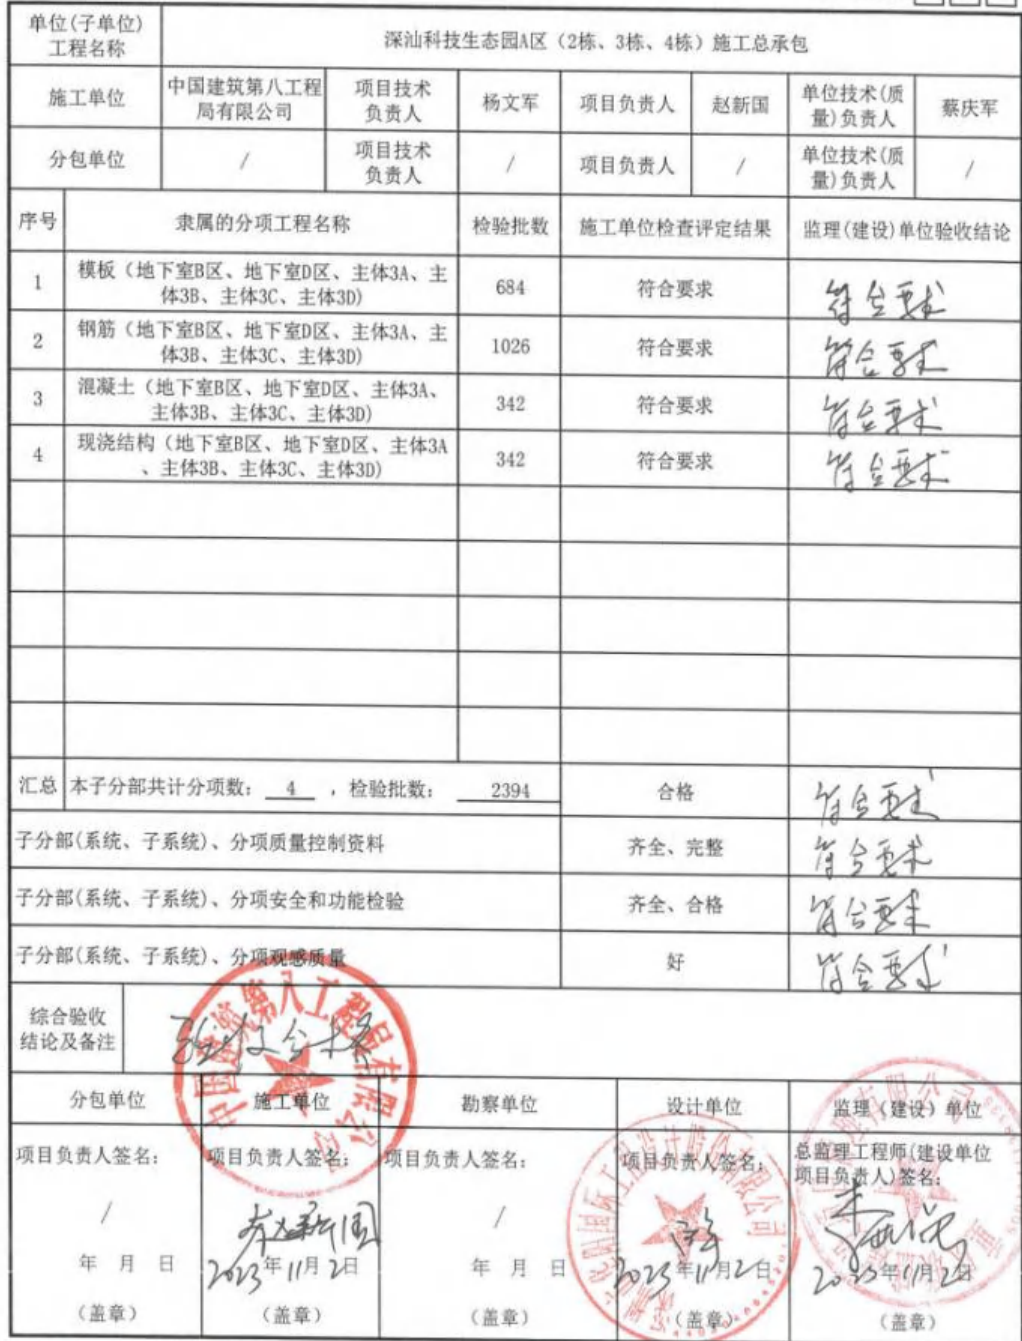 单位(子单位)
工程名称
深汕科技生态园A区（2栋、3栋、4栋）施工总承包
施工单位
中国建筑第八工程
局有限公司
项目技术
负责人
杨文军
项目负责人
赵新国
单位技术(质
量)负责人
蔡庆军
分包单位
/
项目技术
负责人
/
项目负责人
/
单位技术(质
量)负责人
/
序号
隶属的分项工程名称
检验批数
施工单位检查评定结果
监理(建设)单位验收结论
1
模板（地下室B区、地下室D区、主体3A、主
体3B、主体3C、主体3D)
684
符合要求
符合要求
2
钢筋（地下室B区、地下室D区、主体3A、主
体3B、主体3C、主体3D)
1026
符合要求
符合要求
3
混凝土（地下室B区、地下室D区、主体3A、
主体3B、主体3C、主体3D)
342
符合要求
符合要求
4
现浇结构（地下室B区、地下室D区、主体3A
、主体3B、主体3C、主体3D)
342
符合要求
符合要求
汇总
本子分部共计分项数: 4 ，检验批数: 2394
合格
符合要求
子分部(系统、子系统)、分项质量控制资料
齐全、完整
符合要求
子分部(系统、子系统)、分项安全和功能检验
齐全、合格
符合要求
子分部(系统、子系统)、分项观感质量
好
符合要求
综合验收
结论及备注
验收合格
中国建筑第八工程局有限公司
分包单位
施工单位
勘察单位
设计单位
监理（建设）单位
项目负责人签名:
项目负责人签名:
项目负责人签名:
项目负责人签名:
总监理工程师(建设单位
项目负责人)签名:
/
赵新国
/
年 月 日
2023年11月2日
年 月 日
2023年11月2日
2023年11月2日
（盖章）
（盖章）
（盖章）
（盖章）
（盖章）